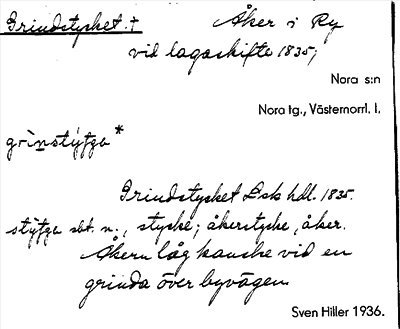 Grindstycket. † Åker i Ry
vid lagaskifte 1835;
Nora s:n
Nora tg., Västernorrl. l.
Grindstycket Lsk hdl. 1835.
sbt. n., stycke; åkerstycke, åker.
Åkern låg kanske vid en
grinda över byvägen
Sven Hiller 1936.